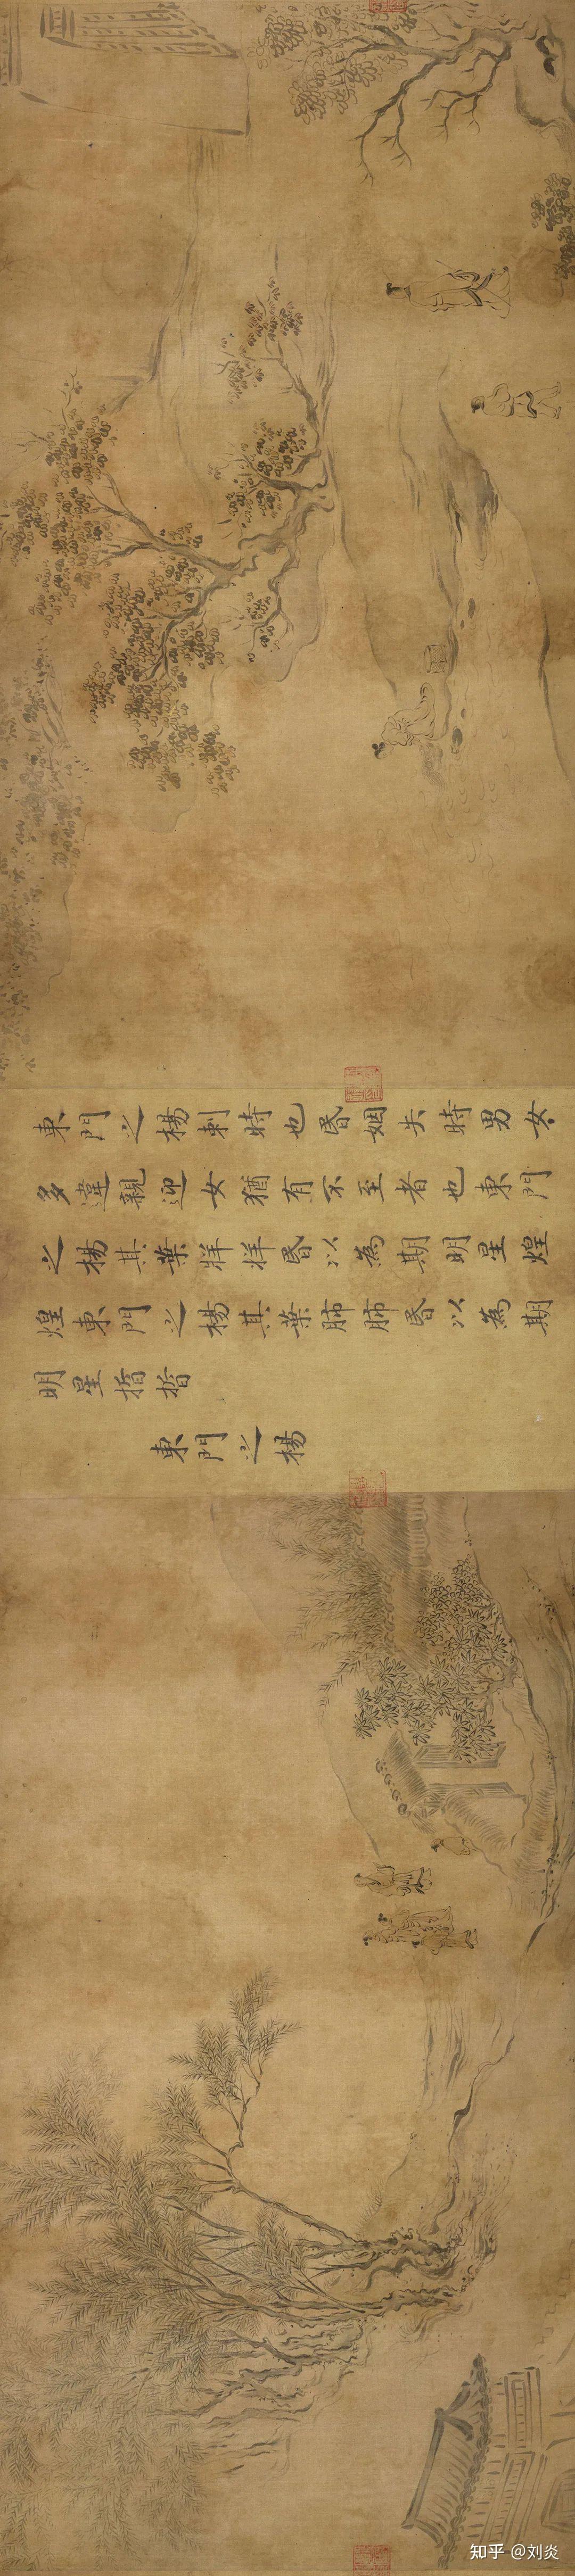 東門之楊刺時也昏姻失時男女
多違親迎女猶有不至者也東門
之楊其葉牂牂昏以為期明星煌
煌東門之楊其葉肺肺昏以為期
明星晢晢
東門之楊
知乎 @刘炎